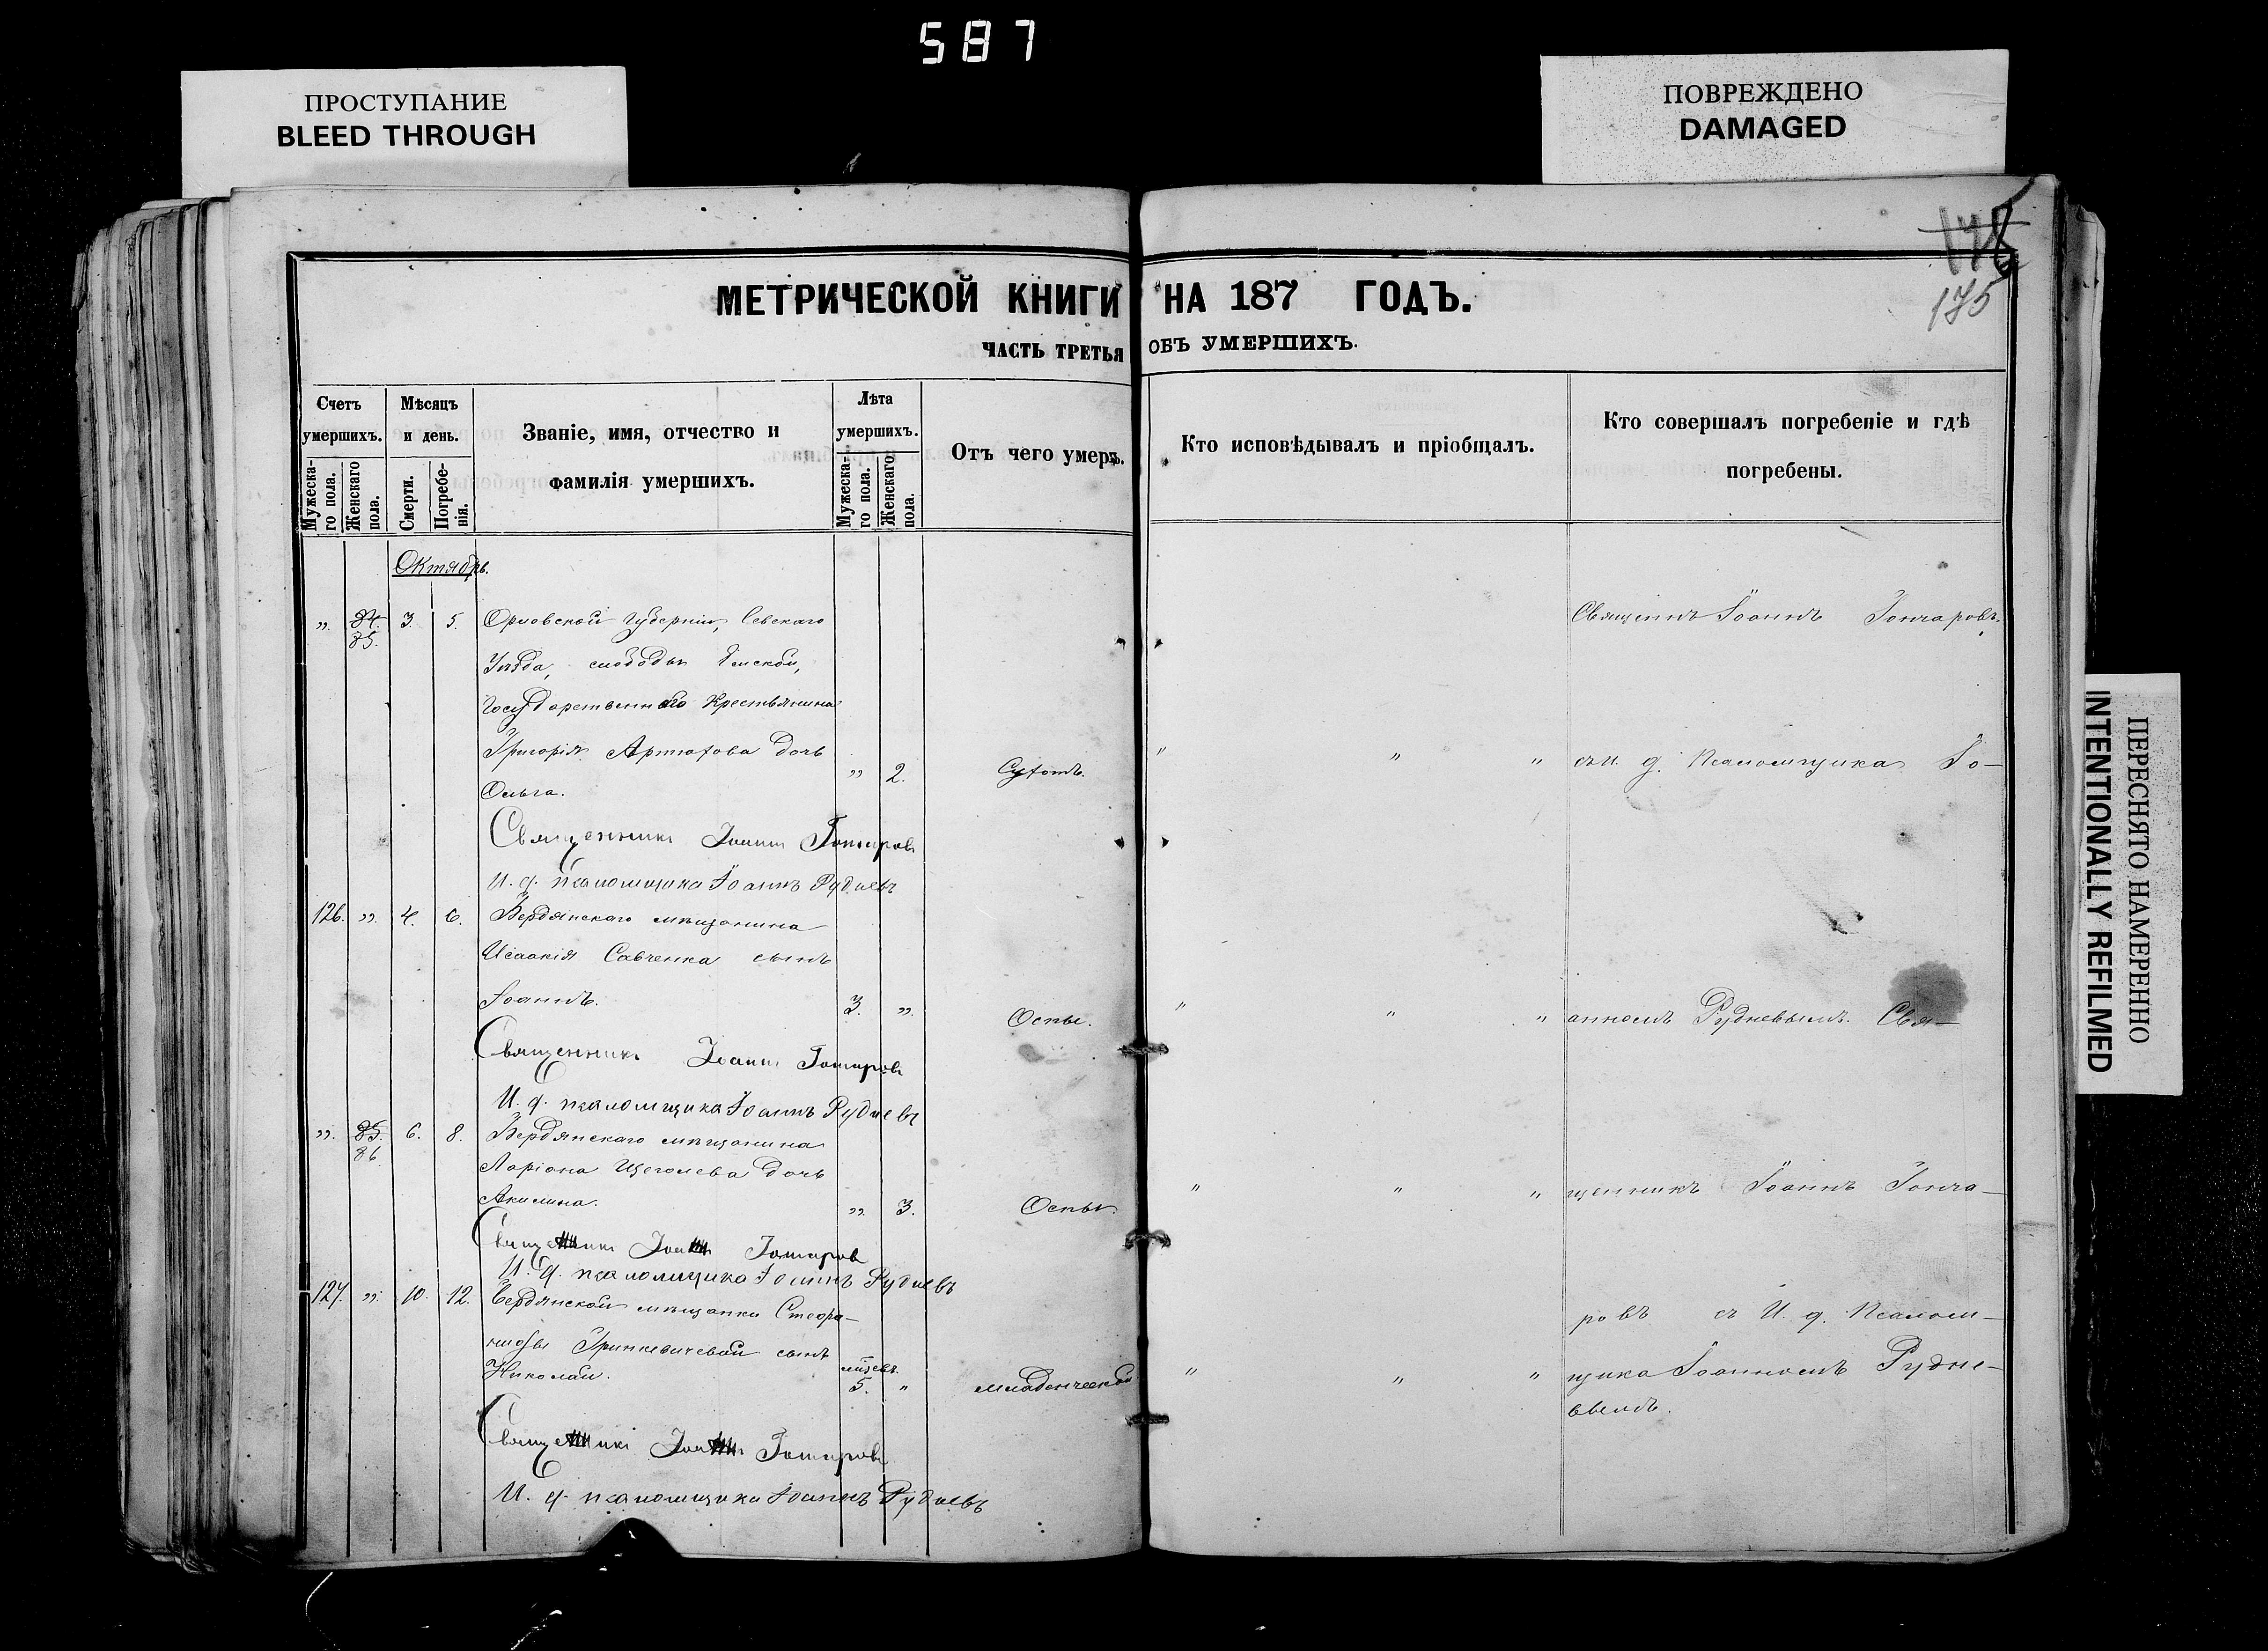 587
ПРОСТУПАНИЕ
BLEED THROUGH
ПОВРЕЖДЕНО
DAMAGED
ПЕРЕСНЯТО НАМЕРЕННО
INTENTIONALLY REFILMED
175
МЕТРИЧЕСКОЙ КНИГИ НА 187 ГОДЪ.
ЧАСТЬ ТРЕТЬЯ ОБЪ УМЕРШИХЪ.
Счетъ умершихъ.
Мужеска-го пола.
Женскаго пола.
Мѣсяцъ и день.
Смерти.
Погребе-нія.
Званіе, имя, отчество и фамилія умершихъ.
Лѣта умершихъ.
Мужеска-го пола.
Женскаго пола.
Отъ чего умеръ.
Кто исповѣдывалъ и пріобщалъ.
Кто совершалъ погребеніе и гдѣ погребены.
Октябрь.
„ 84. 3. 5. Орловской губерніи, Севскаго
85.
Уѣзда, слободы Ямской,
Государственнаго Крестьянина
Григорія Артюхова дочь
Ольга. „ 2. Сухотъ. " " "
Священникъ Іоаннъ Гончаровъ
И. д. псаломщика Іоаннъ Рудневъ
126. „ 4. 6. Бердянскаго мѣщанина
Исаакія Савченка сынъ
Іоаннъ. 3. „ Оспы. " " "
Священникъ Іоаннъ Гончаровъ
И. д. псаломщика Іоаннъ Рудневъ
„ 85. 6. 8. Бердянскаго мѣщанина
86.
Ларіона Щеголева дочь
Акилина. „ 3. Оспы. " " "
Священникъ Іоаннъ Гончаровъ
И. д. псаломщика Іоаннъ Рудневъ
127. „ 10. 12. Бердянской мѣщанки Стефа-
ниды Гринкевичевой сынъ
Николай. мѣсяцевъ 5. " младенческой " " "
Священникъ Іоаннъ Гончаровъ
И. д. псаломщика Іоаннъ Рудневъ
Священникъ Іоаннъ Гончаровъ
съ и. д. Псаломщика Іо-
анномъ Рудневымъ. Свя-
щенникъ Іоаннъ Гонча-
ровъ съ И. д. Псалом-
щика Іоанномъ Рудне-
вымъ.